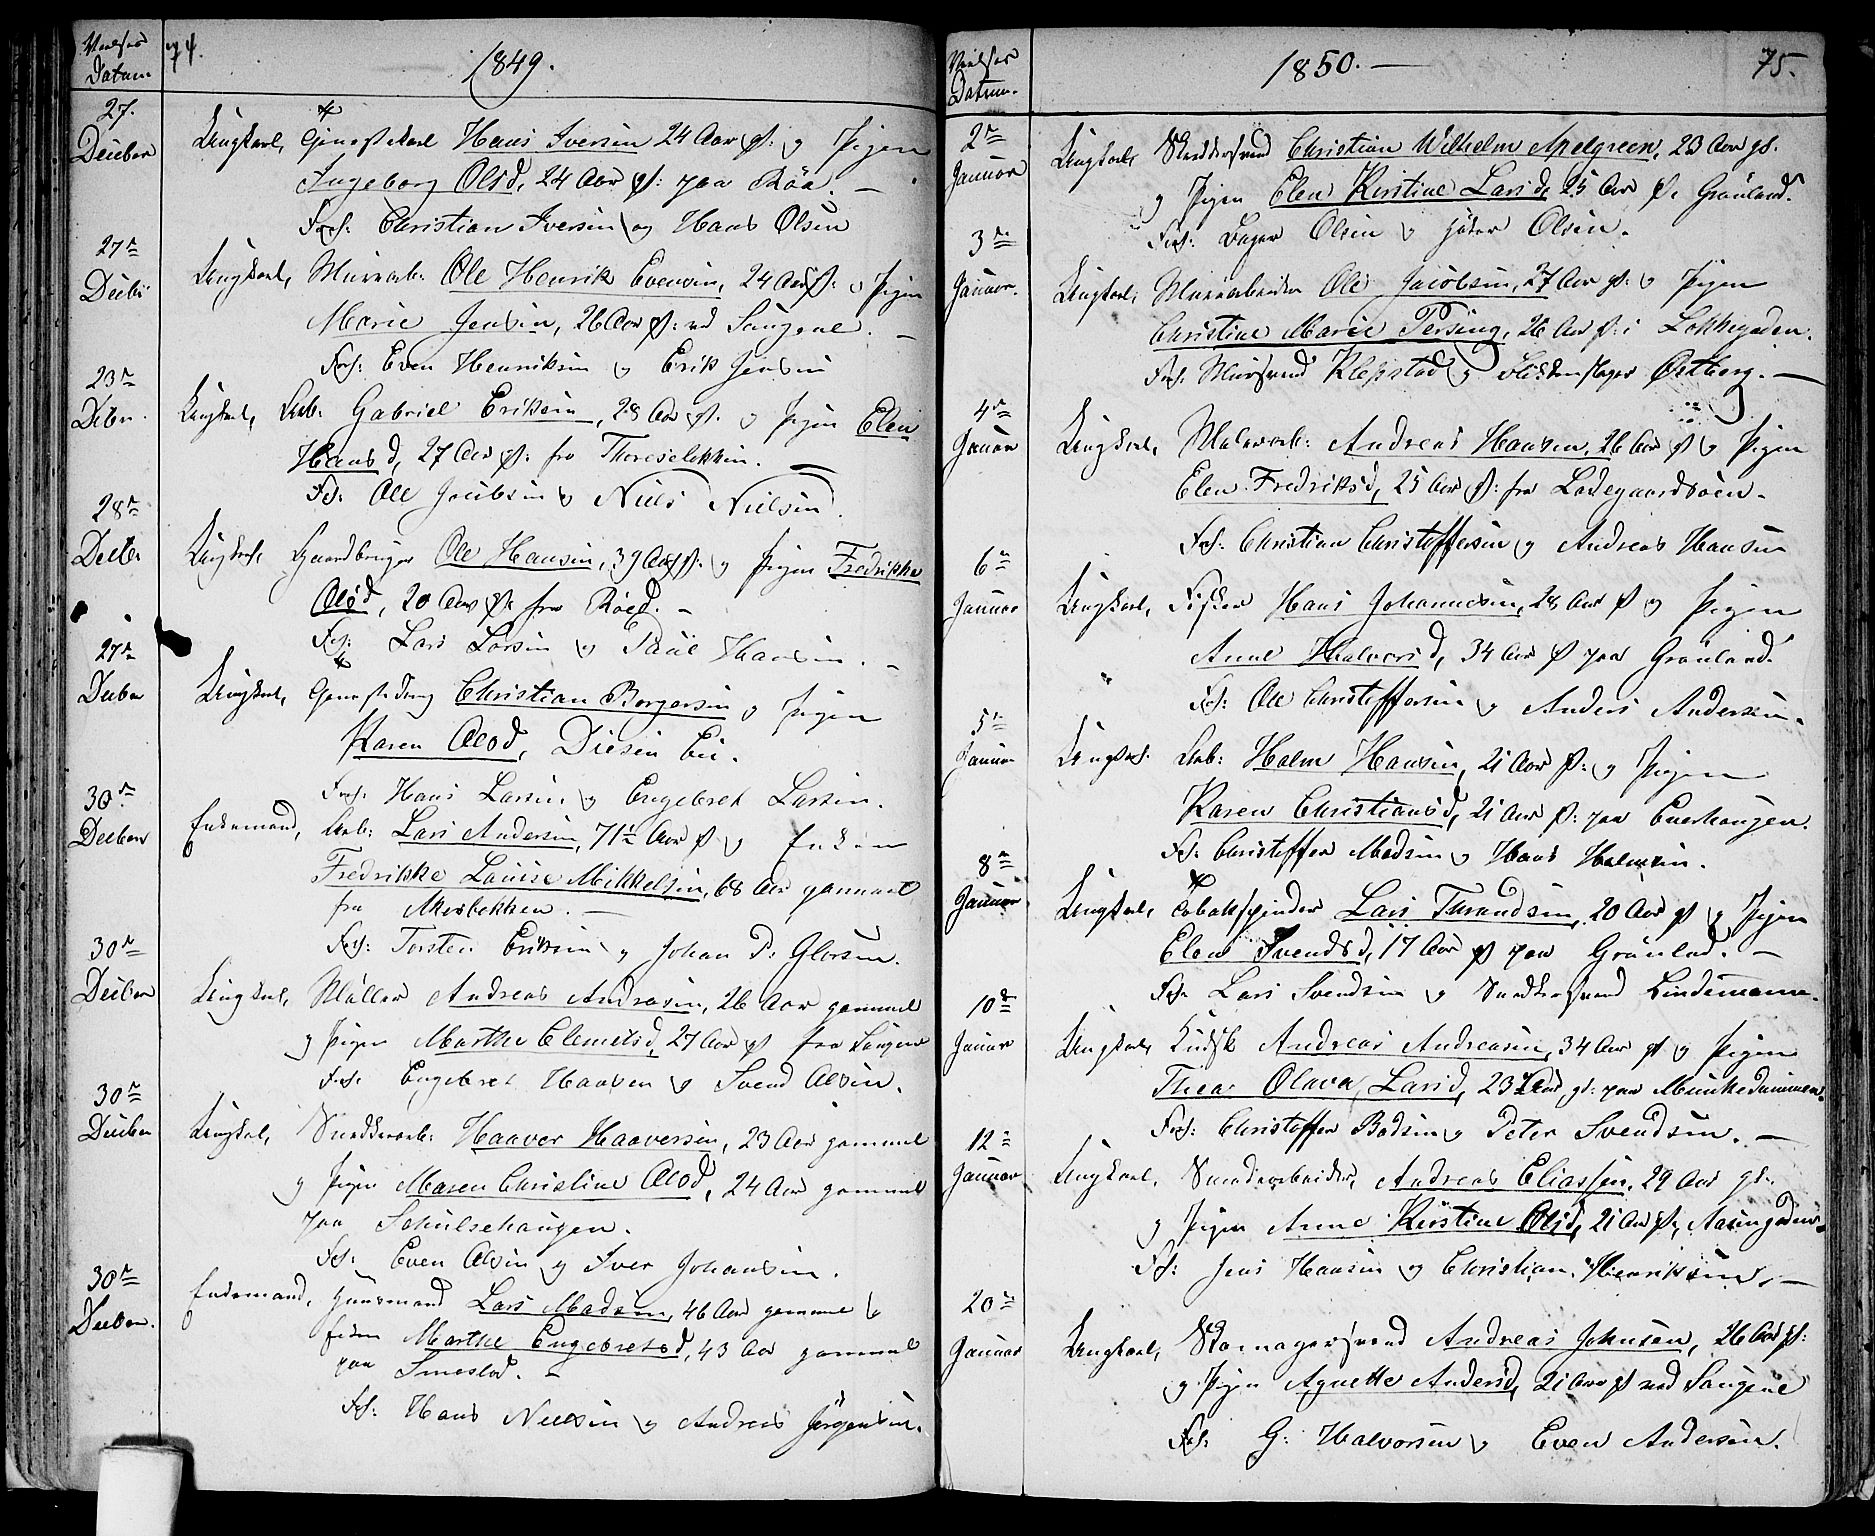 Vielses
Datum.
74.
1849.
27.
Decber
Ungkarl, Hans Iversen 24 Aar gl: og Pigen
Ingeborg Olsd, 24 Aar gl: paa Röa. —
Forl: Christian Iversen og Hans Olsen
27de
Decbr
Ungkarl, Murarb: Ole Henrik Evensen, 24 Aar gl: og Pigen
Marie Jensen, 26 Aar gl: ved Saugene. —
Forl: Even Henriksen og Erik Jensen
23de
Debr.
Ungkarl, Arb: Gabriel Eriksen, 28 Aar gl. og Pigen Elen
Hansd, 27 Aar gl: fra Thereselökken. —
Forl: Ole Jacobsen og Niels Nielsen.
28de
Decbr
Ungkarl, Gaardbruger Ole Hansen, 39 Aar gl. og Pigen Fredrikke
Olsd, 20 Aar gl. fra Röed. —
Forl: Lars Larsen og Paul Hansen. —
27de
Decber
Ungkarl, Christian Borgersen og Pigen
Karen Olsd, Diesen Eie.
Forl: Hans Larsen og Engebret Larsen.
30de
Decber
Enkemand, Arb: Lars Andersen, 71½ Aar gl og Enken
Fredrikke Louise Mikkelsen, 68 Aar gammel
fra Akersbekken. —
Forl: Torsten Eriksen og Johan P. Glorsen.
30de
Decber
Ungkarl, Möller Andreas Andrasen, 26 Aar gammel
og Pigen Marthe Clemetsd, 27 Aar gl fra Saugene
Forl. Engebret Hansen og Svend Olsen.
30de
Decber
Ungkarl, Snedkerarb: Haaver Haaversen, 23 Aar gammel
og Pigen Maren Christine Olsd, 24 Aar gammel
paa Schulsehaugen.
Forl: Even Olsen og Iver Johansen.
30de
Decber.
Enkemand, Huusmand Lars Madsen, 46 Aar gammel og
Enken Marthe Engebretsd, 43 Aar gammel
paa Smestad. —
Forl: Hans Nielsen og Andreas Jörgensen.
Vielses
Datum.
1850. —
75.
2de
Januar
Ungkarl, Skræddersvend Christian Wilhelm Apelgreen, 23 Aar gl.
og Pigen Elen Kirstine Larsd, 25 Aar gl. Grönland.
Forl: Bager Olsen og Olsen.
3de
Januar.
Ungkarl, Murarbeider Ole Jacobsen, 27 Aar gl: og Pigen
Christine Marie Persing, 26 Aar gl: i Lökkegaden.
Forl. Muursvend Klepstad og Östberg. —
4de
Januar
Ungkarl, Malerarb: Andreas Hansen, 26 Aar gl og Pigen
Elen Fredriksd, 25 Aar gl: fra Ladegaardsöen.
Forl: Christian Christoffersen og Andreas Hansen
6te
Januar
Ungkarl, Fisker Hans Johannesen, 28 Aar gl og Pigen
Anne Halvorsd, 34 Aar gl paa Grönland.
Forl: Ole Christoffersen og Anders Andersen.
5te
Januar
Ungkarl. Arb: Halm Hansen, 21 Aar gl: og Pigen
Karen Christiansd, 21 Aar gl: paa Enerhaugen.
Forl: Christoffer Madsen og Hans Halmsen.
8de
Januar
Ungkarl, Tobakspinder Lars Thrandsen, 20 Aar gl og Pigen
Elen Svendsd, 17 Aar gl paa Grönland. —
Forl. Lars Svendsen og Snedkersvend Lindemann.
10de
Januar
Ungkarl, Kudsk Andreas Andreasen, 34 Aar gl og Pigen
Thea Olava Larsd, 23 Aar gl: paa Munkedammen.
Forl: Christoffer Badsen og Peter Svendsen. —
12te
Januar
Ungkarl, Andreas Eliassen, 29 Aar gl.
og Pigen Anne Kirstine Olsd, 21 Aar gl,
Forl: Jens Hansen og Christian Henriksen. —
20de
Januar
Ungkarl, Skomagersvend Andreas Johnsen, 26 Aar gl:
og Pigen Agnette Andersd, 21 Aar gl ved Saugene
Forl. G: Halvorsen og Even Andersen.